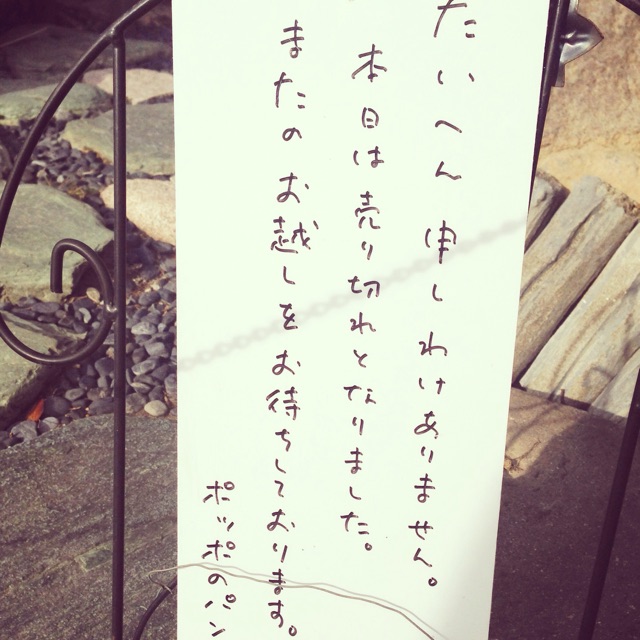 たいへん申しわけありません。
本日は売り切れとなりました。
またのお越しをお待ちしております。
ポッポのパン